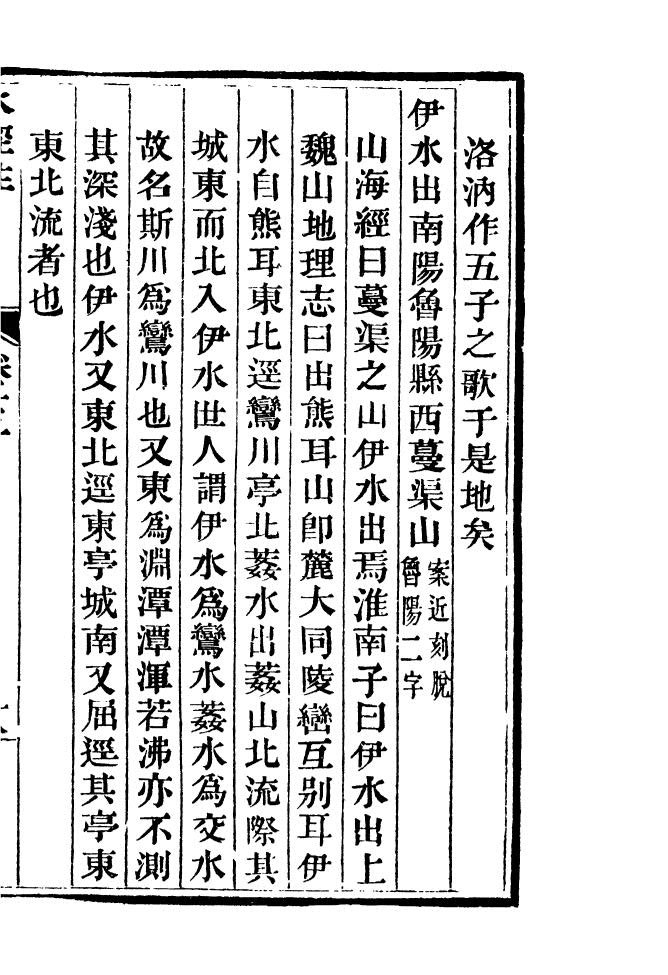 洛汭作五子之歌于是地矣
伊水出南陽魯陽縣西蔓渠山案近刻脫魯陽二字
山海經曰蔓渠之山伊水出焉淮南子曰伊水出上
魏山地理志曰出熊耳山卽麓大同陵巒互别耳伊
水自熊耳東北逕鸞川亭北葌水出葌山北流際其
城東而北入伊水世人謂伊水爲鸞水葌水爲交水
故名斯川爲鸞川也又東爲淵潭潭渾若沸亦不測
其深淺也伊水又東北逕東亭城南又屈逕其亭東
東北流者也
水經注